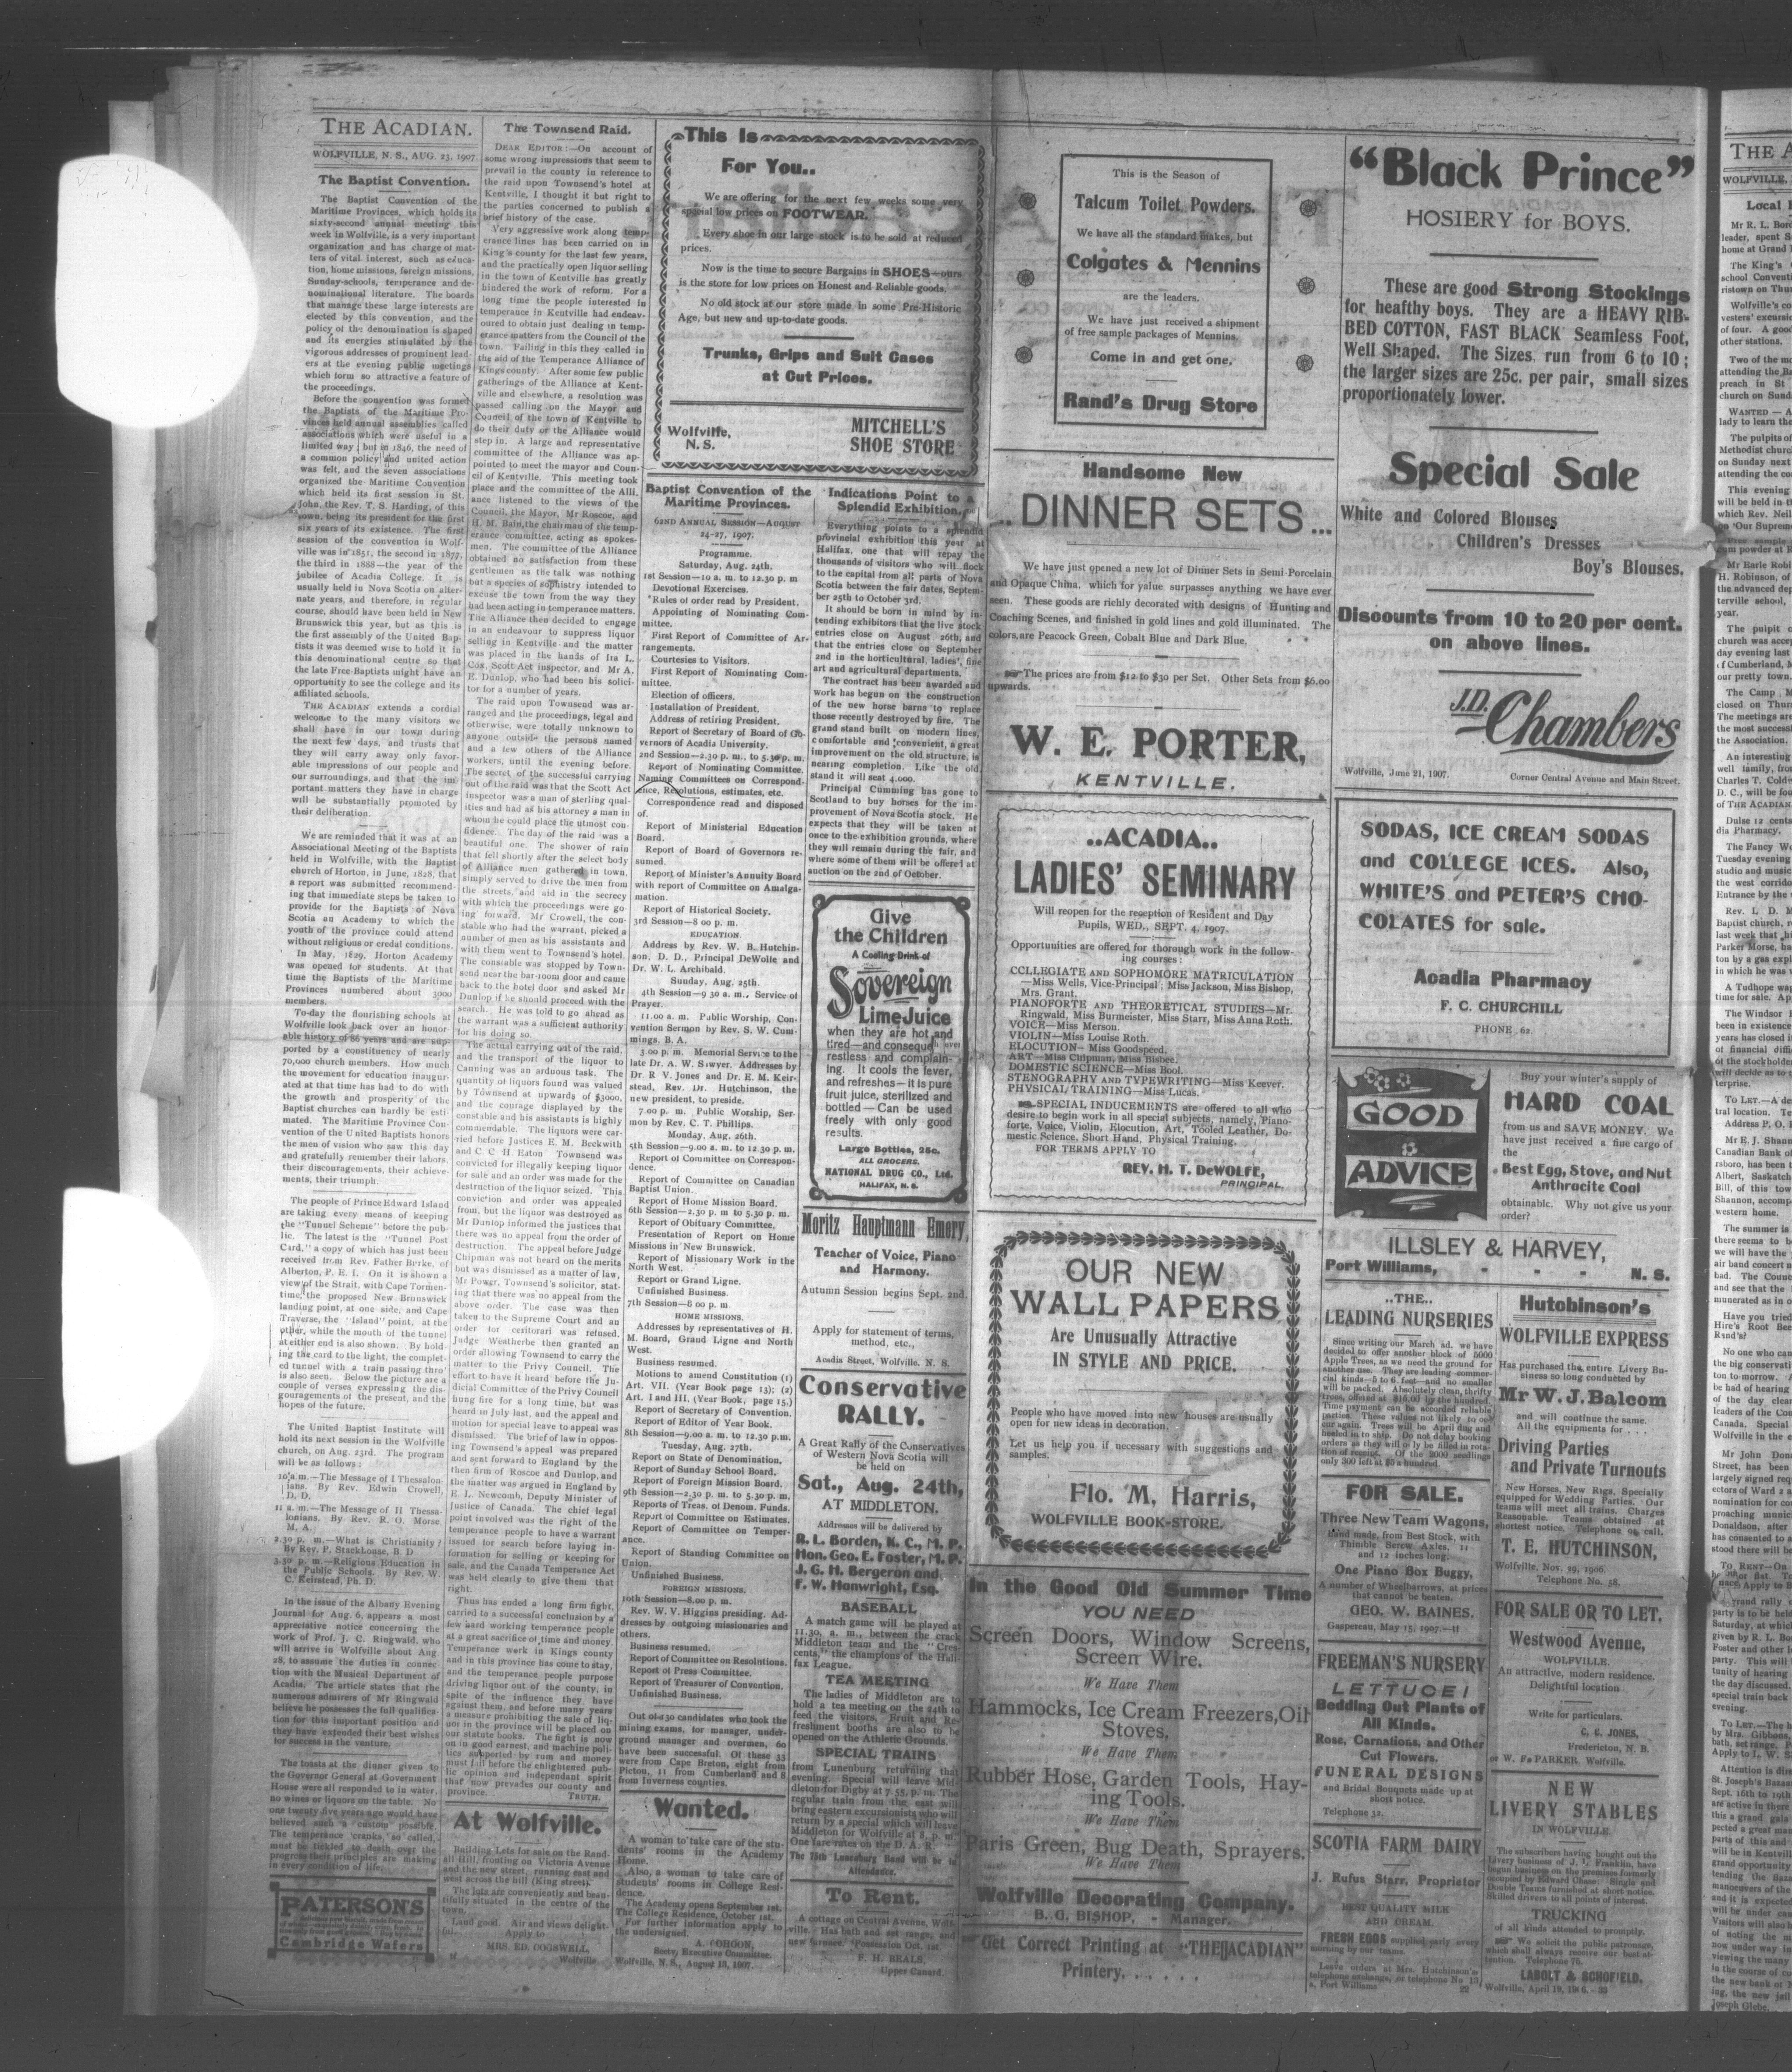 THE ACADIAN.
WOLFVILLE, N. S., AUG. 23, 1907
The Baptist Convention.
The Baptist Convention of the
Maritime Provinces, which holds its
sixty-second annual meeting this
week in Wolfville, is a very important
organization and has charge of mat-
ters of vital interest, such as educa-
tion, home missions, foreign missions,
Sunday-schools, temperance and de-
nominational literature. The boards
that manage these large interests are
elected by this convention, and the
policy of the denomination is shaped
and its energies stimulated by the
vigorous addresses of prominent lead-
ers at the evening public meetings
which form so attractive a feature of
the proceedings.
Before the convention was formed
the Baptists of the Maritime Pro-
vinces held annual assemblies called
associations which were useful in a
limited way; but in 1846, the need of
a common policy and united action
was felt, and the seven associations
organized the Maritime Convention
which held its first session in St.
John, the Rev. T. S. Harding, of this
town, being its president for the first
six years of its existence. The first
session of the convention in Wolf-
ville was in 1851, the second in 1877,
the third in 1888—the year of the
jubilee of Acadia College. It is
usually held in Nova Scotia on alter-
nate years, and therefore, in regular
course, should have been held in New
Brunswick this year, but as this is
the first assembly of the United Bap-
tists it was deemed wise to hold it in
this denominational centre so that
the late Free-Baptists might have an
opportunity to see the college and its
affiliated schools.
THE ACADIAN extends a cordial
welcome to the many visitors we
shall have in our town during
the next few days, and trusts that
they will carry away only favor-
able impressions of our people and
our surroundings, and that the im-
portant matters they have in charge
will be substantially promoted by
their deliberation.
We are reminded that it was at an
Associational Meeting of the Baptists
held in Wolfville, with the Baptist
church of Horton, in June, 1828, that
a report was submitted recommend-
ing that immediate steps be taken to
provide for the Baptists of Nova
Scotia an Academy to which the
youth of the province could attend
without religious or credal conditions.
In May, 1829, Horton Academy
was opened for students. At that
time the Baptists of the Maritime
Provinces numbered about 3900
members.
To-day the flourishing schools at
Wolfville look back over an honor-
able history of 86 years and are sup-
ported by a constituency of nearly
70,000 church members. How much
the movement for education inaugur-
ated at that time has had to do with
the growth and prosperity of the
Baptist churches can hardly be esti-
mated. The Maritime Province Con-
vention of the United Baptists honors
the men of vision who saw this day
and gratefully remember their labors,
their discouragements, their achieve-
ments, their triumph.
The people of Prince Edward Island
are taking every means of keeping
the "Tunnel Scheme" before the pub-
lic. The latest is the "Tunnel Post
Card," a copy of which has just been
received from Rev. Father Burke, of
Alberton, P. E. I. On it is shown a
view of the Strait, with Cape Tormen-
time, the proposed New Brunswick
landing point, at one side, and Cape
Traverse, the "Island" point, at the
other, while the mouth of the tunnel
at either end is also shown. By hold-
ing the card to the light, the complet-
ed tunnel with a train passing thro'
is also seen. Below the picture are a
couple of verses expressing the dis-
couragements of the present, and the
hopes of the future.
The United Baptist Institute will
hold its next session in the Wolfville
church, on Aug. 23rd. The program
will be as follows:
10 a m.—The Message of I Thessalon-
ians. By Rev. Edwin Crowell,
D. D.
11 a. m.—The Message of II Thessa-
lonians. By Rev. R. O. Morse,
M. A.
2.30 p. m.—What is Christianity?
By Rev. P. Stackhouse, B. D
3.30 p. m.—Religious Education in
the Public Schools. By Rev. W.
C. Keirstead, Ph. D.
In the issue of the Albany Evening
Journal for Aug. 6, appears a most
appreciative notice concerning the
work of Prof. J. C. Ringwald, who
will arrive in Wolfville about Aug
28, to assume the duties in connec-
tion with the Musical Department of
Acadia. The article states that the
numerous admirers of Mr Ringwald
believe he possesses the full qualifica-
tion for this important position and
they have extended their best wishes
for success in the venture.
The toasts at the dinner given to
the Governor General at Government
House were all responded to in water,
no wines or liquors on the table. No
one twenty five years ago would have
believed such a custom possible.
The temperance 'cranks,' so called,
must be tickled to death over the
progress their principles are making
in every condition of life.
PATERSON'S
Cambridge Wafers
The Townsend Raid.
DEAR EDITOR:—On account of
some wrong impressions that seem to
prevail in the county in reference to
the raid upon Townsend's hotel at
Kentville, I thought it but right to
the parties concerned to publish a
brief history of the case.
Very aggressive work along temp-
erance lines has been carried on in
King's county for the last few years,
and the practically open liquor selling
in the town of Kentville has greatly
hindered the work of reform. For a
long time the people interested in
temperance in Kentville had endeav-
oured to obtain just dealing in temp-
erance matters from the Council of the
town. Failing in this they called in
the aid of the Temperance Alliance of
Kings county. After some few public
gatherings of the Alliance at Kent-
ville and elsewhere, a resolution was
passed calling on the Mayor and
Council of the town of Kentville to
do their duty or the Alliance would
step in. A large and representative
committee of the Alliance was ap-
pointed to meet the mayor and Coun-
cil of Kentville. This meeting took
place and the committee of the Alli-
ance listened to the views of the
Council, the Mayor, Mr Roscoe, and
H. M. Bain, the chairman of the temp-
erance committee, acting as spokes-
men. The committee of the Alliance
obtained no satisfaction from these
gentlemen as the talk was nothing
but a species of sophistry intended to
excuse the town from the way they
had been acting in temperance matters.
The Alliance then decided to engage
in an endeavour to suppress liquor
selling in Kentville and the matter
was placed in the hands of Ira L.
Cox, Scott Act inspector, and Mr A.
E. Dunlop, who had been his solici-
tor for a number of years.
The raid upon Townsend was ar-
ranged and the proceedings, legal and
otherwise, were totally unknown to
anyone outside the persons named
and a few others of the Alliance
workers, until the evening before.
The secret of the successful carrying
out of the raid was that the Scott Act
inspector was a man of sterling qual-
ities and had as his attorney a man in
whom he could place the utmost con-
fidence. The day of the raid was a
beautiful one. The shower of rain
that fell shortly after the select body
of Alliance men gathered in town,
simply served to drive the men from
the streets, and aid in the secrecy
with which the proceedings were go-
ing forward. Mr Crowell, the con-
stable who had the warrant, picked a
number of men as his assistants and
with them went to Townsend's hotel.
The constable was stopped by Town-
send near the bar-room door and came
back to the hotel door and asked Mr
Dunlop if he should proceed with the
search. He was told to go ahead as
the warrant was a sufficient authority
for his doing so.
The actual carrying out of the raid,
and the transport of the liquor to
Canning was an arduous task. The
quantity of liquors found was valued
by Townsend at upwards of $3000,
and the courage displayed by the
constable and his assistants is highly
commendable. The liquors were car-
ried before Justices E. M. Beckwith
and C. C. H. Eaton. Townsend was
convicted for illegally keeping liquor
for sale and an order was made for the
destruction of the liquor seized. This
conviction and order was appealed
from, but the liquor was destroyed as
Mr Dunlop informed the justices that
there was no appeal from the order of
destruction. The appeal before Judge
Chipman was not heard on the merits
but was dismissed as a matter of law,
Mr Power, Townsend's solicitor, stat-
ing that there was no appeal from the
above order. The case was then
taken to the Supreme Court and an
order for ceritorari was refused.
Judge Westherbe then granted an
order allowing Townsend to carry the
matter to the Privy Council. The
effort to have it heard before the Ju-
dicial Committee of the Privy Council
hung fire for a long time, but was
heard in July last, and the appeal and
motion for special leave to appeal was
dismissed. The brief of law in oppos-
ing Townsend's appeal was prepared
and sent forward to England by the
then firm of Roscoe and Dunlop, and
the matter was argued in England by
E. L. Newcomb, Deputy Minister of
Justice of Canada. The chief legal
point involved was the right of the
temperance people to have a warrant
issued for search before laying in-
formation for selling or keeping for
sale, and the Canada Temperance Act
was held clearly to give them that
right.
Thus has ended a long firm fight,
carried to a successful conclusion by a
few hard working temperance people
at a great sacrifice of time and money.
Temperance work in Kings county
and in this province has come to stay,
and the temperance people purpose
driving liquor out of the county, in
spite of the influence they have
against them, and before many years
a measure prohibiting the sale of liq-
uor in the province will be placed on
our statute books. The fight is now
on in good earnest, and machine poli-
tics supported by rum and money
must fall before the enlightened pub-
lic opinion and independent spirit
that now prevades our county and
province. TRUTH.
At Wolfville.
Building Lots for sale on the Rand-
all Hill, fronting on Victoria Avenue
and the new street, running east and
west across the hill (King street).
The lots are conveniently and beau-
tifully situated in the centre of the
town.
Land good. Air and views delight-
ful. Apply to
MRS. ED. COGSWELL,
Wolfville
This Is
For You..
We are offering for the next few weeks some very
special low prices on FOOTWEAR.
Every shoe in our large stock is to be sold at reduced
prices.
Now is the time to secure Bargains in SHOES—ours
is the store for low prices on Honest and Reliable goods.
No old stock at our store made in some Pre-Historic
Age, but new and up-to-date goods.
Trunks, Grips and Suit Cases
at Cut Prices.
Wolfville,
N. S.
MITCHELL'S
SHOE STORE
Baptist Convention of the
Maritime Provinces.
62ND ANNUAL SESSION—AUGUST
24-27, 1907.
Programme.
Saturday, Aug. 24th.
1st Session—10 a. m. to 12.30 p. m
Devotional Exercises.
Rules of order read by President.
Appointing of Nominating Com-
mittee.
First Report of Committee of Ar-
rangements.
Courtesies to Visitors.
First Report of Nominating Com-
mittee.
Election of officers.
Installation of President.
Address of retiring President.
Report of Secretary of Board of Go-
vernors of Acadia University.
2nd Session—2.30 p. m., to 5.30 p. m.
Report of Nominating Committee.
Naming Committees on Correspond-
ence, Resolutions, estimates, etc.
Correspondence read and disposed
of.
Report of Ministerial Education
Board.
Report of Board of Governors re-
sumed.
Report of Minister's Annuity Board
with report of Committee on Amalga-
mation.
Report of Historical Society.
3rd Session—8 00 p. m.
EDUCATION
Address by Rev. W. B. Hutchin-
son, D. D., Principal DeWolfe and
Dr. W. L. Archibald.
Sunday, Aug. 25th.
4th Session—9 30 a. m., Service of
Prayer.
11.00 a. m. Public Worship, Con-
vention Sermon by Rev. S. W. Cum-
mings, B. A.
3.00 p. m. Memorial Service to the
late Dr. A. W. Sawyer. Addresses by
Dr. R V. Jones and Dr. E. M. Keir-
stead, Rev. Dr. Hutchinson, the
new president, to preside.
7.00 p. m. Public Worship, Ser-
mon by Rev. C. T. Phillips.
Monday, Aug. 26th.
5th Session—9.00 a. m. to 12 30 p. m.
Report of Committee on Correspon-
dence.
Report of Committee on Canadian
Baptist Union.
Report of Home Mission Board.
6th Session—2.30 p. m to 5.30 p. m.
Report of Obituary Committee.
Presentation of Report on Home
Missions in New Brunswick.
Report of Missionary Work in the
North West.
Report or Grand Ligne.
Unfinished Business.
7th Session—8 00 p. m.
HOME MISSIONS.
Addresses by representatives of H.
M. Board, Grand Ligne and North
West.
Business resumed.
Motions to amend Constitution (1)
Art. VII. (Year Book page 13); (2)
Art. I and III. (Year Book, page 15.)
Report of Secretary of Convention.
Report of Editor of Year Book.
8th Session—9.00 a. m. to 12.30 p. m.
Tuesday, Aug. 27th.
Report on State of Denomination.
Report of Sunday School Board.
Report of Foreign Mission Board.
9th Session—2.30 p. m. to 5.30 p. m.
Reports of Treas. of Denom. Funds.
Report of Committee on Estimates.
Report of Committee on Temper-
ance.
Report of Standing Committee on
Union.
Unfinished Business.
FOREIGN MISSIONS.
10th Session—8.00 p. m.
Rev. W. V. Higgins presiding. Ad-
dresses by outgoing missionaries and
others.
Business resumed.
Report of Committee on Resolutions.
Report of Press Committee.
Report of Treasurer of Convention.
Unfinished Business.
Out of 130 candidates who took the
mining exams, for manager, under-
ground manager and overmen, 60
have been successful. Of these 33
were from Cape Breton, eight from
Picton, 11 from Cumberland and 8
from Inverness counties.
Wanted.
A woman to take care of the stu-
dents' rooms in the Academy
Home.
Also, a woman to take care of
students' rooms in College Resi-
dence.
The Academy opens September 1st.
The College Residence, October 1st.
For further information apply to
the undersigned.
A. COHOON,
Secty, Executive Committee.
Wolfville, N. S., August 15, 1907.
Indications Point to a
Splendid Exhibition.
Everything points to a splendid
provincial exhibition this year at
Halifax, one that will repay the
thousands of visitors who will flock
to the capital from all parts of Nova
Scotia between the fair dates, Septem-
ber 25th to October 3rd.
It should be born in mind by in-
tending exhibitors that the live stock
entries close on August 26th, and
that the entries close on September
and in the horticultural, ladies', fine
art and agricultural departments.
The contract has been awarded and
work has begun on the construction
of the new horse barns to replace
those recently destroyed by fire. The
grand stand built on modern lines,
comfortable and convenient, a great
improvement on the old structure, is
nearing completion. Like the old
stand it will seat 4,000.
Principal Cumming has gone to
Scotland to buy horses for the im-
provement of Nova Scotia stock. He
expects that they will be taken at
once to the exhibition grounds, where
they will remain during the fair, and
where some of them will be offered at
auction on the 2nd of October.
Give
the Children
A Cooling Drink of
Sovereign
Lime Juice
when they are hot and
tired—and consequently
restless and complain-
ing. It cools the fever,
and refreshes—it is pure
fruit juice, sterilized and
bottled—Can be used
freely with only good
results.
Large Bottles, 25c.
ALL GROCERS.
NATIONAL DRUG CO., Ltd.
HALIFAX, N. S.
Moritz Hauptmann Emery,
Teacher of Voice, Piano
and Harmony.
Autumn Session begins Sept. 2nd.
Apply for statement of terms,
method, etc.,
Acadia Street, Wolfville, N. S.
Conservative
RALLY.
A Great Rally of the Conservatives
of Western Nova Scotia will
be held on
Sat., Aug. 24th,
AT MIDDLETON.
Addresses will be delivered by
R. L. Borden, K. C., M. P.
Hon. Geo. E. Foster, M. P.
J. G. H. Bergeron and
F. W. Hanwright, Esq.
BASEBALL
A match game will be played at
11.30, a. m., between the crack
Middleton team and the "Cres-
cents," the champions of the Hali-
fax League.
TEA MEETING
The ladies of Middleton are to
hold a tea meeting on the 24th to
feed the visitors. Fruit and Re-
freshment booths are also to be
opened on the Athletic Grounds.
SPECIAL TRAINS
from Lunenburg returning that
evening. Special will leave Mid-
dleton for Digby at 7.55, p. m. The
regular train from the east will
bring eastern excursionists who will
return by a special which will leave
Middleton for Wolfville at 8, p. m.
One fare rates on the D. A. R.
The 75th Lunenburg Band will be in
Attendance.
To Rent.
A cottage on Central Avenue, Wolf-
ville. Has bath and set range, and
new furnace. Possession Oct. 1st.
F. H. BEALS,
Upper Canard.
This is the Season of
Talcum Toilet Powders.
We have all the standard makes, but
Colgates & Mennins
are the leaders.
We have just received a shipment
of free sample packages of Mennins.
Come in and get one.
Rand's Drug Store
Handsome New
..DINNER SETS...
We have just opened a new lot of Dinner Sets in Semi-Porcelain
and Opaque China, which for value surpasses anything we have ever
seen. These goods are richly decorated with designs of Hunting and
Coaching Scenes, and finished in gold lines and gold illuminated. The
colors are Peacock Green, Cobalt Blue and Dark Blue.
The prices are from $12 to $30 per Set. Other Sets from $6.00
upwards.
W. E. PORTER,
KENTVILLE.
..ACADIA..
LADIES' SEMINARY
Will reopen for the reception of Resident and Day
Pupils, WED., SEPT. 4, 1907.
Opportunities are offered for thorough work in the follow-
ing courses:
CCLLEGIATE AND SOPHOMORE MATRICULATION
—Miss Wells, Vice-Principal; Miss Jackson, Miss Bishop,
Mrs. Grant.
PIANOFORTE AND THEORETICAL STUDIES—Mr.
Ringwald, Miss Burmeister, Miss Starr, Miss Anna Roth.
VOICE—Miss Merson.
VIOLIN—Miss Louise Roth.
ELOCUTION—Miss Goodspeed.
ART—Miss Chipman, Miss Bisbee.
DOMESTIC SCIENCE—Miss Bool.
STENOGRAPHY AND TYPEWRITING—Miss Keever.
PHYSICAL TRAINING—Miss Lucas.
SPECIAL INDUCEMENTS are offered to all who
desire to begin work in all special subjects, namely, Piano-
forte, Voice, Violin, Elocution, Art, Tooled Leather, Do-
mestic Science, Short Hand, Physical Training.
FOR TERMS APPLY TO
REV. H. T. DeWOLFE,
PRINCIPAL.
OUR NEW
WALL PAPERS
Are Unusually Attractive
IN STYLE AND PRICE.
People who have moved into new houses are usually
open for new ideas in decoration.
Let us help you if necessary with suggestions and
samples.
Flo. M. Harris,
WOLFVILLE BOOK-STORE.
In the Good Old Summer Time
YOU NEED
Screen Doors, Window Screens,
Screen Wire.
We Have Them
Hammocks, Ice Cream Freezers, Oil
Stoves.
We Have Them
Rubber Hose, Garden Tools, Hay-
ing Tools.
We Have Them
Paris Green, Bug Death, Sprayers.
We Have Them
Wolfville Decorating Company.
B. G. BISHOP, - Manager.
Get Correct Printing at "THE ACADIAN"
Printery. . . . . .
"Black Prince"
HOSIERY for BOYS.
These are good Strong Stockings
for healfhy boys. They are a HEAVY RIB-
BED COTTON, FAST BLACK Seamless Foot,
Well Shaped. The Sizes run from 6 to 10;
the larger sizes are 25c. per pair, small sizes
proportionately lower.
Special Sale
White and Colored Blouses
Children's Dresses
Boy's Blouses.
Discounts from 10 to 20 per cent.
on above lines.
J.D. Chambers
Wolfville, June 21, 1907.
Corner Central Avenue and Main Street.
SODAS, ICE CREAM SODAS
and COLLEGE ICES. Also,
WHITE'S and PETER'S CHO-
COLATES for sale.
Acadia Pharmacy
F. C. CHURCHILL
PHONE 62.
GOOD
ADVICE
Buy your winter's supply of
HARD COAL
from us and SAVE MONEY. We
have just received a fine cargo of
the
Best Egg, Stove, and Nut
Anthracite Coal
obtainable. Why not give us your
order?
ILLSLEY & HARVEY,
Port Williams, - - - N. S.
..THE..
LEADING NURSERIES
Since writing our March ad. we have
decided to offer another block of 5000
Apple Trees, as we need the ground for
another use. They are leading commer-
cial kinds—5 to 6 feet—and no smaller
will be packed. Absolutely clean, thrifty
trees, offered at $18.00 by the hundred.
Time payment can be accorded reliable
parties. These values not likely to oc-
cur again. Trees will be April dug and
heeled in to ship. Do not delay booking
orders as they will only be filled in rota-
tion of receipt. Of the 2000 seedlings
only 300 left at $5 a hundred.
FOR SALE.
Three New Team Wagons,
Hand made, from Best Stock, with
Thimble Screw Axles, 11
and 12 inches long.
One Piano Box Buggy,
A number of Wheelbarrows, at prices
that cannot be beaten.
GEO. W. BAINES.
Gaspereau, May 15, 1907.—tf
FREEMAN'S NURSERY
LETTUCE!
Bedding Out Plants of
All Kinds.
Rose, Carnations, and Other
Cut Flowers.
FUNERAL DESIGNS
and Bridal Bouquets made up at
short notice.
Telephone 32.
SCOTIA FARM DAIRY
J. Rufus Starr, Proprietor
BEST QUALITY MILK
AND CREAM.
FRESH EGGS supplied early every
morning by our teams.
Leave orders at Mrs. Hutchinson's
telephone exchange, or telephone No 13,
, Port Williams 22
Hutchinson's
WOLFVILLE EXPRESS
Has purchased the entire Livery Bu-
siness so long conducted by
Mr W. J. Balcom
and will continue the same.
All the equipments for . . .
Driving Parties
and Private Turnouts
New Horses, New Rigs. Specially
equipped for Wedding Parties. Our
teams will meet all trains. Charges
Reasonable. Teams obtained at
shortest notice. Telephone or call.
T. E. HUTCHINSON,
Wolfville, Nov. 19, 1906.
Telephone No. 58.
FOR SALE OR TO LET.
Westwood Avenue,
WOLFVILLE.
An attractive, modern residence.
Delightful location
Write for particulars.
C. C. JONES,
Fredericton, N. B.
or W. F. PARKER Wolfville.
NEW
LIVERY STABLES
IN WOLFVILLE.
The subscribers having bought out the
Livery business of J. I. Franklin, have
begun business on the premises formerly
occupied by Edward Chase. Single and
Double Teams furnished at short notice.
Skilled drivers to all points of interest.
TRUCKING
of all kinds attended to promptly.
We solicit the public patronage,
which shall always receive our best at-
tention. Telephone 75.
LABOLT & SCHOFIELD.
Wolfville, April 19, 1906.
THE A
WOLFVILLE,
Local
Mr R. L. Bord
leader, spent S
home at Grand
The King's
school Conventi
ristown on Thu
Wolfville's co
vesters' excursi
of four. A good
other stations.
Two of the mo
attending the Ba
preach in St
church on Sund
WANTED — A
lady to learn the
The pulpits of
Methodist church
on Sunday next
attending the co
This evening
will be held in t
which Rev. Neil
on 'Our Suprem
Mr Earle Robi
H. Robinson, of
the advanced dep
terville school,
year.
The pulpit o
church was accep
day evening last
of Cumberland, M
our pretty town.
The Camp M
closed on Thur
The meetings are
the most successf
the Association.
An interesting
well family, fro
Charles T. Cold
D. C., will be fou
of THE ACADIAN
Dulse 12 cents
dia Pharmacy.
The Fancy Wo
Tuesday evening
studio and music
the west corrido
Entrance by the
Rev. L D. M
Baptist church, r
last week that hi
Parker Morse, ha
ton by a gas expl
in which he was
A Tudhope wag
time for sale. Ap
The Windsor
been in existence
years has closed i
of financial diffi
of the stockholde
will decide as to
terprise.
TO LET.—A de
tral location. Te
Address P. O.
Mr E. J. Shann
Canadian Bank of
rsboro, has been t
Albert, Saskatch
Bill, of this tow
Shannon, accomp
western home.
The summer is
there seems to b
we will have the
air band concert n
bad. The Counc
and see that the
munerated as in o
Have you tried
Hire's Root Bee
Rand's?
No one who can
the big conservat
ton to morrow. A
be had of hearing
of the day clear
leaders of the Con
Canada. Special
Wolfville in the e
Mr John Dona
Street, has been
largely signed req
ectors of Ward 2 a
nomination for co
proaching munic
Donaldson, after
has consented to a
stood there will be
TO RENT—On
Apply to
grand rally
party is to be held
Saturday, at which
given by R. L. Bo
Foster and other l
party. This will
tunity of hearing
the day discussed.
special train back
evening.
TO LET.—The h
by Mrs. Gibbons,
bath, set range. P
Apply to L. W. S
Attention is dire
St. Joseph's Bazaa
Sept. 16th to 19th
are active in their
this a grand gala
pected a great man
parts of this and
will be in Kentvill
grand opportunity
tending the Baza
manoeuvers of the
and it is expected
will be under can
Visitors will also h
of noting the ma
now under way in
viewing the many i
in the course of co
the new bank or N
ing, the new jail
Joseph Glebe.